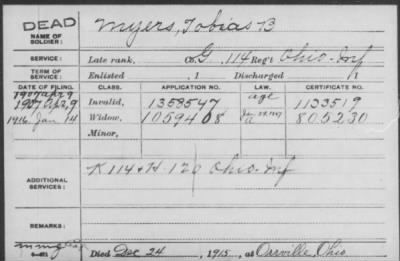 DEAD
NAME OF SOLDIER: Myers, Tobias B
SERVICE: Late rank, Co. G, 114 Reg't Ohio Inf
TERM OF SERVICE: Enlisted , 1 Discharged , 1
DATE OF FILING. CLASS. APPLICATION NO. LAW. CERTIFICATE NO.
1907 Apr 9 Invalid, 1358547 age 1133519
1916 Jan 14 Widow, 1059408 805230
Minor,
ADDITIONAL SERVICES: K 114 & H 120 Ohio Inf
REMARKS:
Died Dec 24, 1915, at Orrville, Ohio